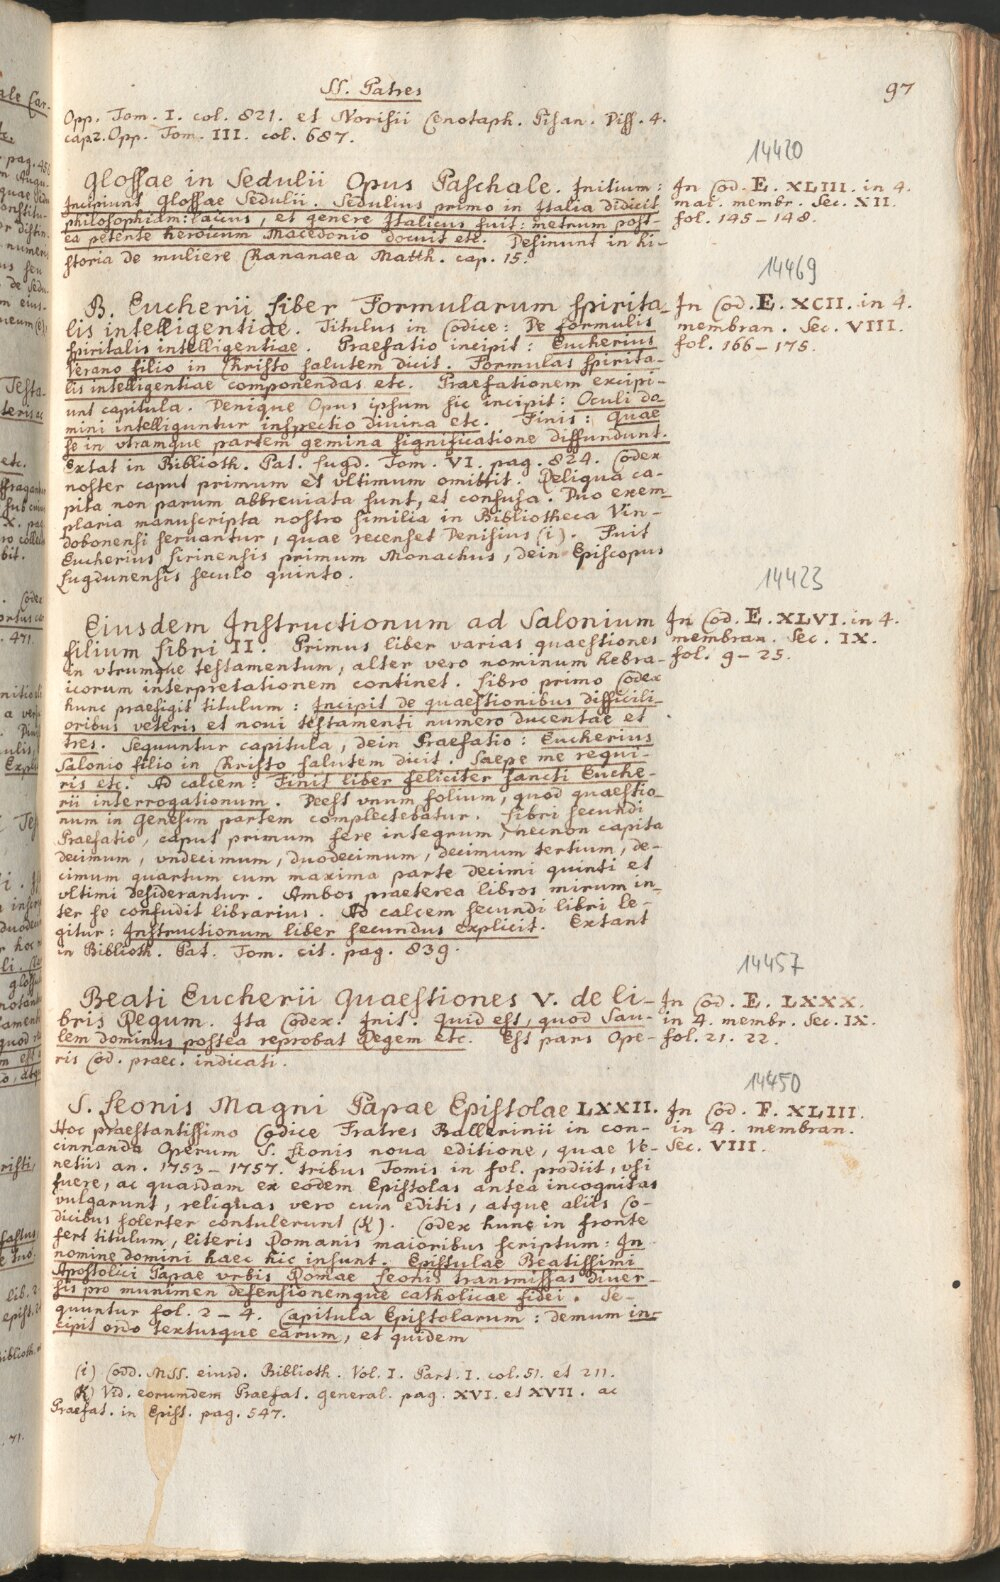 SS. Patres
97
Opp. Tom. I. col. 821. et Norisii Cenotaph. Pisan. Diss. 4.
cap. 2. Opp. Tom. III. col. 687.
14420
Glossae in Sedulii Opus Paschale. Initium:
Incipiunt Glossae Sedulii. Sedulius primo in Italia didicit
philosophiam: laicus, et genere Italicus fuit: metrum post-
ea petente heroicum Macedonio docuit etc. Desinunt in hi-
storia de muliere Chananaea Matth. cap. 15.
In Cod. E. XLIII. in 4.
mai. membr. Sec. XII.
fol. 145-148.
14469
B. Eucherii Liber Formularum spirita-
lis intelligentiae. Titulus in Codice: De formulis
spiritalis intelligentiae. Praefatio incipit: Eucherius
Verano filio in Christo salutem dicit. Formulas spirita-
lis intelligentiae componendas etc. Praefationem excipi-
unt capitula. Denique Opus ipsum sic incipit: Oculi do-
mini intelliguntur inspectio divina etc. Finis: quae
se in vtramque partem gemina significatione diffundunt.
Extat in Biblioth. Pat. Lugd. Tom. VI. pag. 824. Codex
noster caput primum et vltimum omittit. Reliqua ca-
pita non parum abbreviata sunt, et confusa. Duo exem-
plaria manuscripta nostro similia in Bibliotheca Vin-
dobonensi servantur, quae recenset Denisius (i). Fuit
Eucherius Lirinensis primum Monachus, dein Episcopus
Lugdunensis seculo quinto.
In Cod. E. XCII. in 4.
membran. Sec. VIII.
fol. 166-175.
14423
Eiusdem Instructionum ad Salonium
filium Libri II. Primus liber varias quaestiones
in vtrumque testamentum, alter vero nominum hebra-
icorum interpretationem continet. Libro primo Codex
hunc praefigit titulum: Incipit de quaestionibus difficili-
oribus veteris et noui testamenti numero ducentae et
tres. Sequuntur capitula, dein Praefatio: Eucherius
Salonio filio in Christo salutem dicit. Saepe me requi-
ris etc. Ad calcem: Finit liber feliciter sancti Euche-
rii interrogationum. Deest vnum folium, quod quaestio-
num in Genesim partem complectebatur. Libri secundi
Praefatio, caput primum fere integrum, necnon capita
decimum, vndecimum, duodecimum, decimum tertium, de-
cimum quartum cum maxima parte decimi quinti et
vltimi desiderantur. Ambos praeterea libros mirum in-
ter se confudit librarius. Ad calcem secundi libri le-
gitur: Instructionum liber secundus explicit. Extant
in Biblioth. Pat. Tom. cit. pag. 839.
In Cod. E. XLVI. in 4.
membran. Sec. IX.
fol. 9-25.
14457
Beati Eucherii Quaestiones V. de li-
bris Regum. Ita Codex. Init. Quid est, quod Sau-
lem dominus postea reprobat Regem etc. Est pars Ope-
ris Cod. praec. indicati.
In Cod. E. LXXX.
in 4. membr. Sec. IX.
fol. 21. 22.
14450
S. Leonis Magni Papae Epistolae LXXII.
Hoc praestantissimo Codice Fratres Ballerinii in con-
cinnanda Operum S. Leonis noua editione, quae Ve-
netiis an. 1753-1757. tribus Tomis in fol. prodiit, vsi
fuere, ac quasdam ex eodem Epistolas antea incognitas
vulgarunt, reliquas vero cum editis, atque aliis Co-
dicibus solerter contulerunt (K). Codex hunc in fronte
fert titulum, literis Romanis maioribus scriptum: In
nomine domini haec hic insunt. Epistulae Beatissimi
Apostolici Papae vrbis Romae Leonis transmissas diuer-
sis pro munimen defensionemque catholicae fidei. Se-
quuntur fol. 2-4. Capitula Epistolarum: demum in-
cipit ordo textusque earum, et quidem
In Cod. F. XLIII.
in 4. membran.
Sec. VIII.
(i) Codd. MSS. eiusd. Biblioth. Vol. I. Part. I. col. 51. et 211.
(K) Vid. eorumdem Praefat. general. pag. XVI. et XVII. ac
Praefat. in Epist. pag. 547.